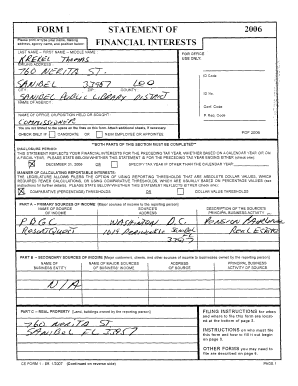 FORM 1
STATEMENT OF
2006
Please print or type your name, mailing address, agency name, and position below:
FINANCIAL INTERESTS
LAST NAME -- FIRST NAME -- MIDDLE NAME
FOR OFFICE USE ONLY:
KREKEL THOMAS
MAILING ADDRESS
760 NERITA ST.
SANIBEL 33957 LEE
CITY ZIP COUNTY
SANIBEL PUBLIC LIBRARY DISTRICT
NAME OF AGENCY
COMMISSIONER
NAME OF OFFICE OR POSITION HELD OR SOUGHT
You are not limited to the space on the lines on this form. Attach additional sheets, if necessary.
CHECK ONLY IF CANDIDATE OR NEW EMPLOYEE OR APPOINTEE
ID Code
ID No.
Conf. Code
P. Req. Code
PDF 2006
**BOTH PARTS OF THIS SECTION MUST BE COMPLETED**
DISCLOSURE PERIOD:
THIS STATEMENT REFLECTS YOUR FINANCIAL INTERESTS FOR THE PRECEDING TAX YEAR, WHETHER BASED ON A CALENDAR YEAR OR ON A FISCAL YEAR. PLEASE STATE BELOW WHETHER THIS STATEMENT IS FOR THE PRECEDING TAX YEAR ENDING EITHER (check one):
DECEMBER 31, 2006 OR SPECIFY TAX YEAR IF OTHER THAN THE CALENDAR YEAR:
MANNER OF CALCULATING REPORTABLE INTERESTS:
THE LEGISLATURE ALLOWS FILERS THE OPTION OF USING REPORTING THRESHOLDS THAT ARE ABSOLUTE DOLLAR VALUES, WHICH REQUIRES FEWER CALCULATIONS, OR USING COMPARATIVE THRESHOLDS, WHICH ARE USUALLY BASED ON PERCENTAGE VALUES (see instructions for further details). PLEASE STATE BELOW WHETHER THIS STATEMENT REFLECTS EITHER (check one):
COMPARATIVE (PERCENTAGE) THRESHOLDS OR DOLLAR VALUE THRESHOLDS
PART A -- PRIMARY SOURCES OF INCOME [Major sources of income to the reporting person]
NAME OF SOURCE OF INCOME
SOURCE'S ADDRESS
DESCRIPTION OF THE SOURCE'S PRINCIPAL BUSINESS ACTIVITY
WASHINGTON D.C.
33957
REAL ESTATE
PART B -- SECONDARY SOURCES OF INCOME [Major customers, clients, and other sources of income to businesses owned by the reporting person]
NAME OF BUSINESS ENTITY
NAME OF MAJOR SOURCES OF BUSINESS' INCOME
ADDRESS OF SOURCE
PRINCIPAL BUSINESS ACTIVITY OF SOURCE
N/A
PART C -- REAL PROPERTY [Land, buildings owned by the reporting person]
760 NERITA ST.
SANIBEL FL 33957
FILING INSTRUCTIONS for when and where to file this form are located at the bottom of page 2.
INSTRUCTIONS on who must file this form and how to fill it out begin on page 3.
OTHER FORMS you may need to file are described on page 6.
CE FORM 1 - Eff. 1/2007 (Continued on reverse side)
PAGE 1